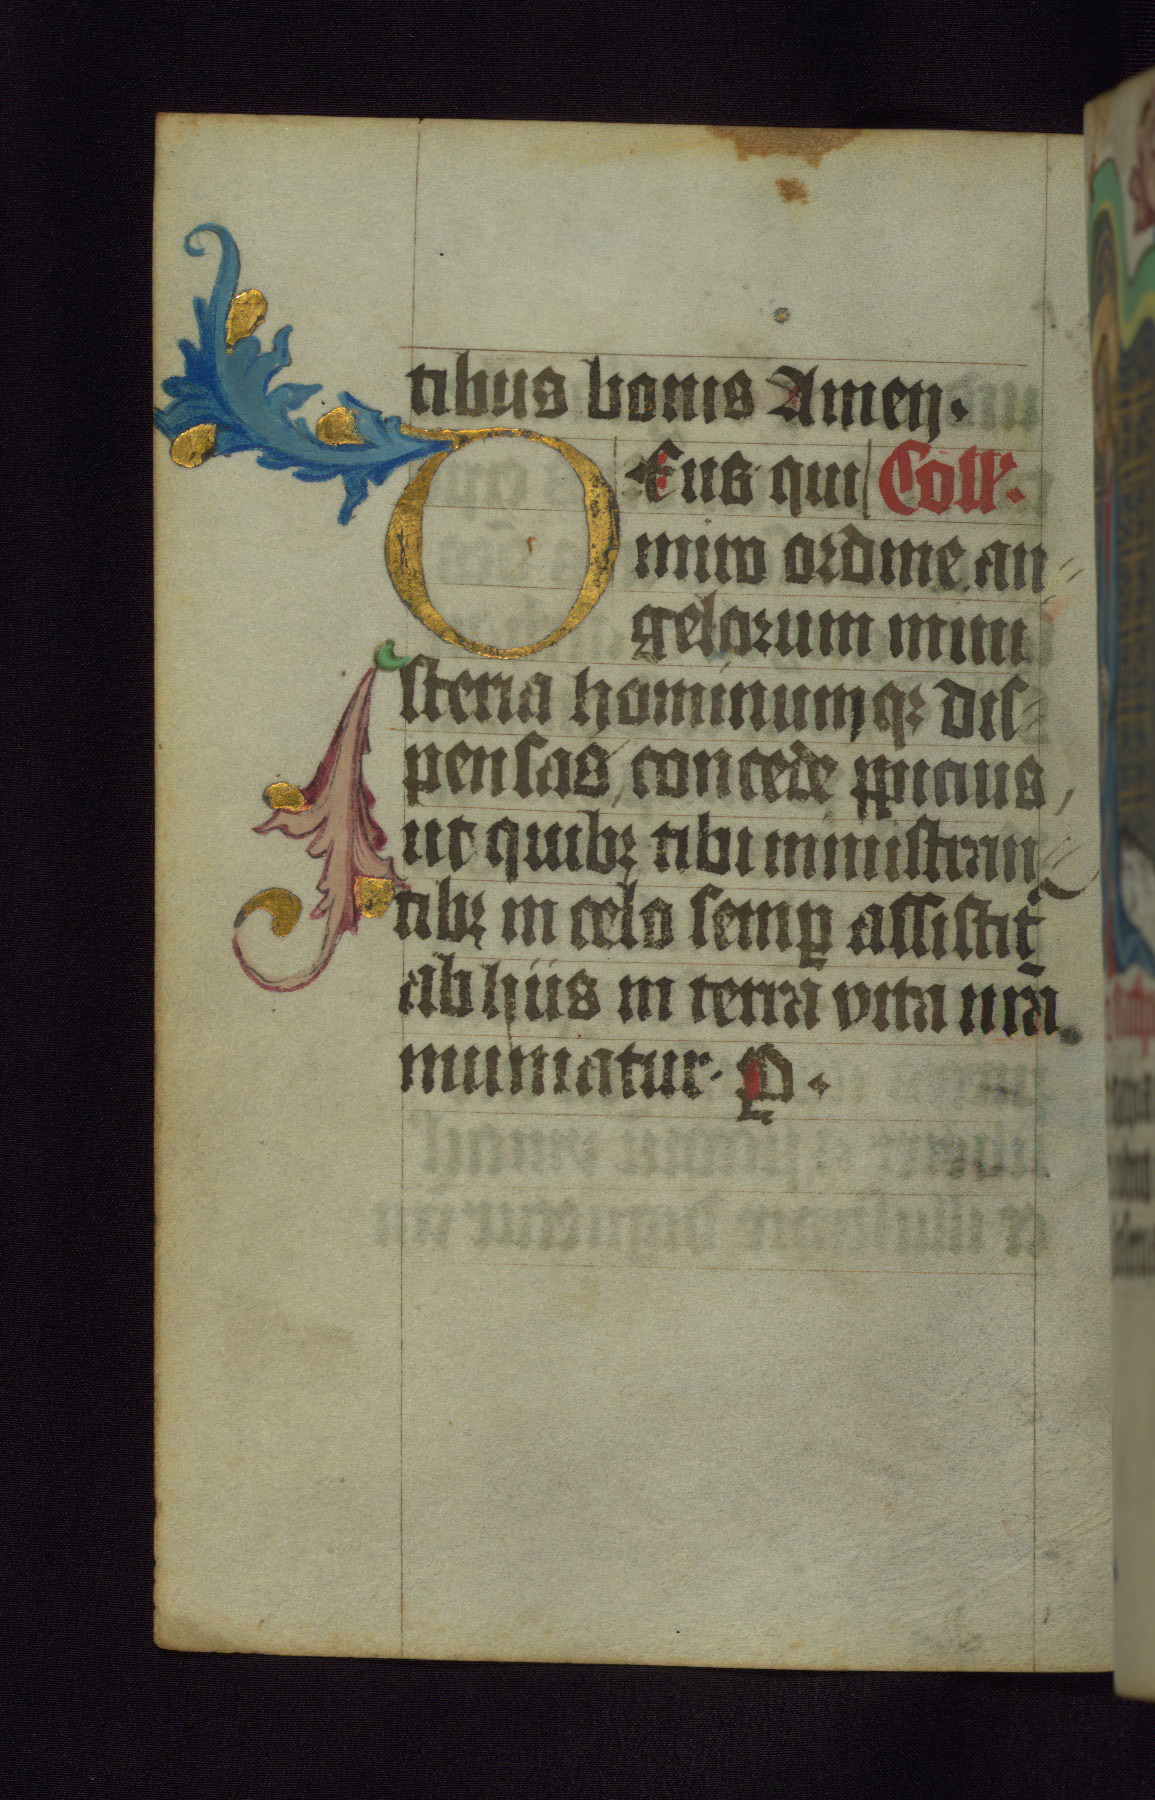 tibus bonis Amen.
DEus qui Coll'.
miro ordine an
gelorum mini
steria hominumqꝫ dis
pensas, concede ꝓpicius,
ut quibꝫ tibi ministran
tibꝫ in celo semꝑ assistit᷑
ab hiis in terra vita nr̄a
muniatur. P.